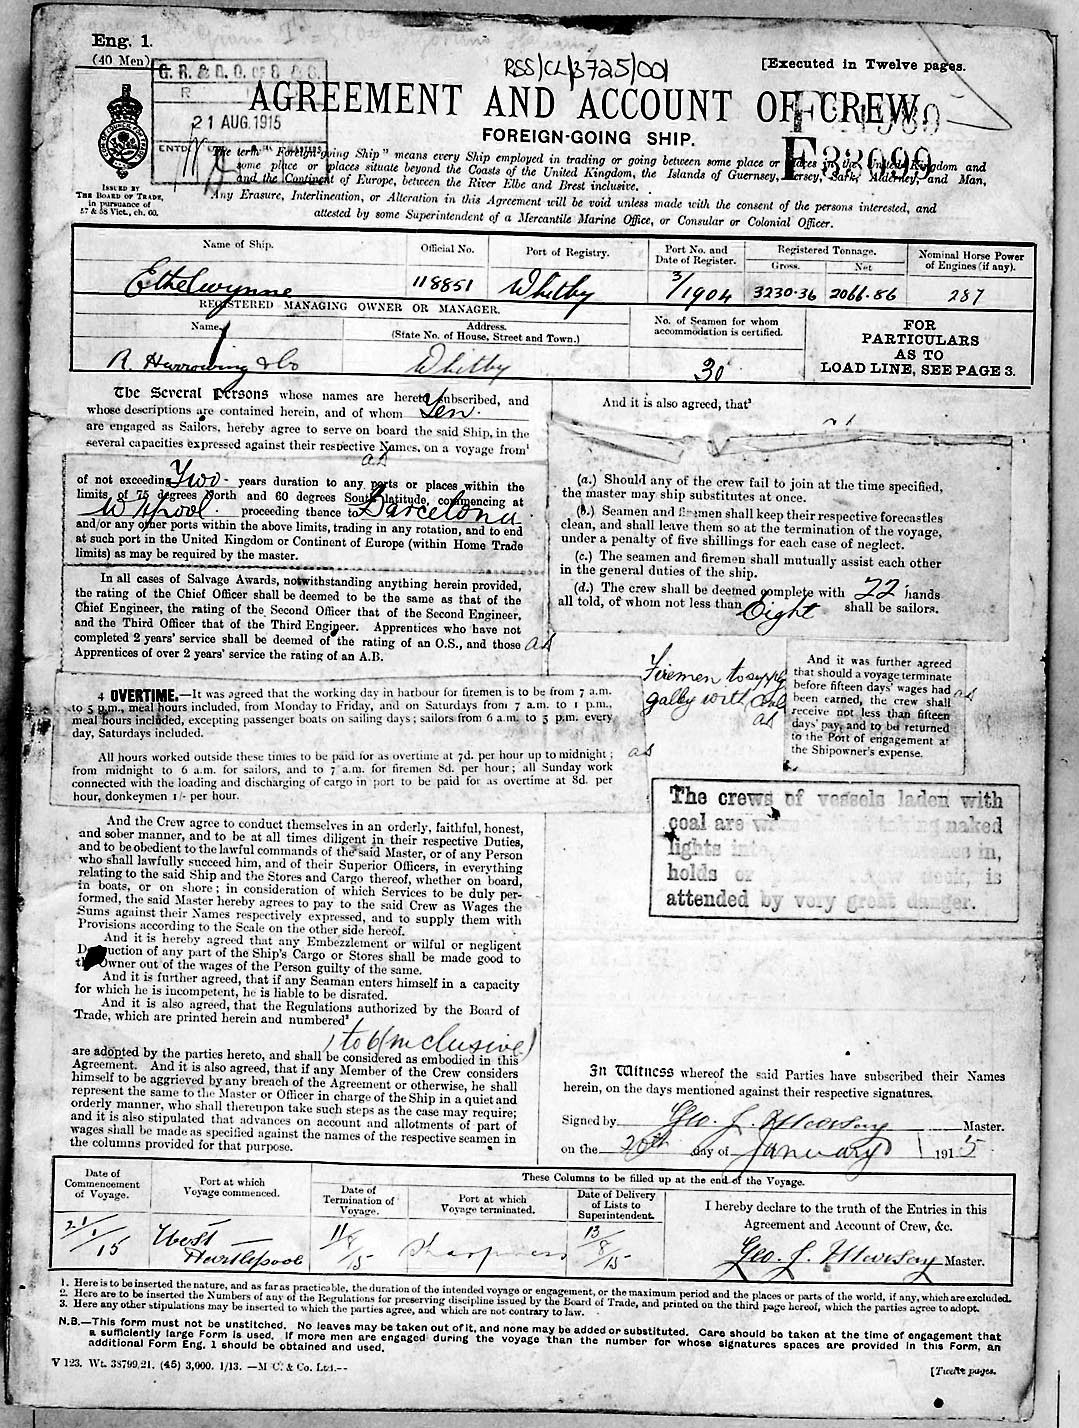 Eng. 1.
(40 Men)
RSS/CL/3725/001
[Executed in Twelve pages.
21 AUG. 1915
AGREEMENT AND ACCOUNT OF CREW
FOREIGN-GOING SHIP.
E33099
The term "Foreign-going Ship" means every Ship employed in trading or going between some place or places in the United Kingdom and
some place or places situate beyond the Coasts of the United Kingdom, the Islands of Guernsey, Jersey, Sark, Alderney, and Man,
and the Continent of Europe, between the River Elbe and Brest inclusive.
Any Erasure, Interlineation, or Alteration in this Agreement will be void unless made with the consent of the persons interested, and
attested by some Superintendent of a Mercantile Marine Office, or Consular or Colonial Officer.
ISSUED BY
THE BOARD OF TRADE,
in pursuance of
57 & 58 Vict., ch. 60.
Name of Ship.
Official No.
Port of Registry.
Port No. and
Date of Register.
Registered Tonnage.
Gross.
Net
Nominal Horse Power
of Engines (if any).
Ethelwynne
118851
Whitby
3/1904
3230.36
2066.86
287
REGISTERED MANAGING OWNER OR MANAGER.
Name.
Address.
(State No. of House, Street and Town.)
No. of Seamen for whom
accommodation is certified.
FOR
PARTICULARS
AS TO
LOAD LINE, SEE PAGE 3.
R. Harrowing & Co
Whitby
30
The Several Persons whose names are hereto subscribed, and
whose descriptions are contained herein, and of whom Ten
are engaged as Sailors, hereby agree to serve on board the said Ship, in the
several capacities expressed against their respective Names, on a voyage from¹
of not exceeding Two years duration to any ports or places within the
limits of 75 degrees North and 60 degrees South latitude, commencing at
W Hpool proceeding thence to Barcelona
and/or any other ports within the above limits, trading in any rotation, and to end
at such port in the United Kingdom or Continent of Europe (within Home Trade
limits) as may be required by the master.
In all cases of Salvage Awards, notwithstanding anything herein provided,
the rating of the Chief Officer shall be deemed to be the same as that of the
Chief Engineer, the rating of the Second Officer that of the Second Engineer,
and the Third Officer that of the Third Engineer. Apprentices who have not
completed 2 years' service shall be deemed of the rating of an O.S., and those
Apprentices of over 2 years' service the rating of an A.B.
4 OVERTIME.—It was agreed that the working day in harbour for firemen is to be from 7 a.m.
to 5 p.m., meal hours included, from Monday to Friday, and on Saturdays from 7 a.m. to 1 p.m.,
meal hours included, excepting passenger boats on sailing days; sailors from 6 a.m. to 5 p.m. every
day, Saturdays included.
All hours worked outside these times to be paid for as overtime at 7d. per hour up to midnight;
from midnight to 6 a.m. for sailors, and to 7 a.m. for firemen 8d. per hour; all Sunday work
connected with the loading and discharging of cargo in port to be paid for as overtime at 8d. per
hour, donkeymen 1/- per hour.
And the Crew agree to conduct themselves in an orderly, faithful, honest,
and sober manner, and to be at all times diligent in their respective Duties,
and to be obedient to the lawful commands of the said Master, or of any Person
who shall lawfully succeed him, and of their Superior Officers, in everything
relating to the said Ship and the Stores and Cargo thereof, whether on board,
in boats, or on shore; in consideration of which Services to be duly per-
formed, the said Master hereby agrees to pay to the said Crew as Wages the
Sums against their Names respectively expressed, and to supply them with
Provisions according to the Scale on the other side hereof.
And it is hereby agreed that any Embezzlement or wilful or negligent
Destruction of any part of the Ship's Cargo or Stores shall be made good to
the Owner out of the wages of the Person guilty of the same.
And it is further agreed, that if any Seaman enters himself in a capacity
for which he is incompetent, he is liable to be disrated.
And it is also agreed, that the Regulations authorized by the Board of
Trade, which are printed herein and numbered²
1 to 6 (inclusive)
are adopted by the parties hereto, and shall be considered as embodied in this
Agreement. And it is also agreed, that if any Member of the Crew considers
himself to be aggrieved by any breach of the Agreement or otherwise, he shall
represent the same to the Master or Officer in charge of the Ship in a quiet and
orderly manner, who shall thereupon take such steps as the case may require;
and it is also stipulated that advances on account and allotments of part of
wages shall be made as specified against the names of the respective seamen in
the columns provided for that purpose.
And it is also agreed, that³
(a.) Should any of the crew fail to join at the time specified,
the master may ship substitutes at once.
(b.) Seamen and firemen shall keep their respective forecastles
clean, and shall leave them so at the termination of the voyage,
under a penalty of five shillings for each case of neglect.
(c.) The seamen and firemen shall mutually assist each other
in the general duties of the ship.
(d.) The crew shall be deemed complete with 22 hands
all told, of whom not less than Eight shall be sailors.
Firemen to supply
galley with coal
And it was further agreed
that should a voyage terminate
before fifteen days' wages had
been earned, the crew shall
receive not less than fifteen
days' pay, and to be returned
to the Port of engagement at
the Shipowner's expense.
The crews of vessels laden with
coal are naked
lights in,
holds is
attended by very great danger.
In Witness whereof the said Parties have subscribed their Names
herein, on the days mentioned against their respective signatures.
Signed by Geo. J. Marsay Master.
on the 20th day of January 1915
Date of
Commencement
of Voyage.
Port at which
Voyage commenced.
These Columns to be filled up at the end of the Voyage.
Date of
Termination of
Voyage.
Port at which
Voyage terminated.
Date of Delivery
of Lists to
Superintendent.
I hereby declare to the truth of the Entries in this
Agreement and Account of Crew, &c.
21/1/15
West
Hartlepool
11/8/15
Sharpness
13/8/15
Geo. J. Marsay Master.
1. Here is to be inserted the nature, and as far as practicable, the duration of the intended voyage or engagement, or the maximum period and the places or parts of the world, if any, which are excluded.
2. Here are to be inserted the Numbers of any of the Regulations for preserving discipline issued by the Board of Trade, and printed on the third page hereof, which the parties agree to adopt.
3. Here any other stipulations may be inserted to which the parties agree, and which are not contrary to law.
N.B.—This form must not be unstitched. No leaves may be taken out of it, and none may be added or substituted. Care should be taken at the time of engagement that
a sufficiently large Form is used. If more men are engaged during the voyage than the number for whose signatures spaces are provided in this Form, an
additional Form Eng. 1 should be obtained and used.
V 123. Wt. 38799/21. (45) 3,000. 1/13. —M'C. & Co. Ltd.--
[Twelve pages.